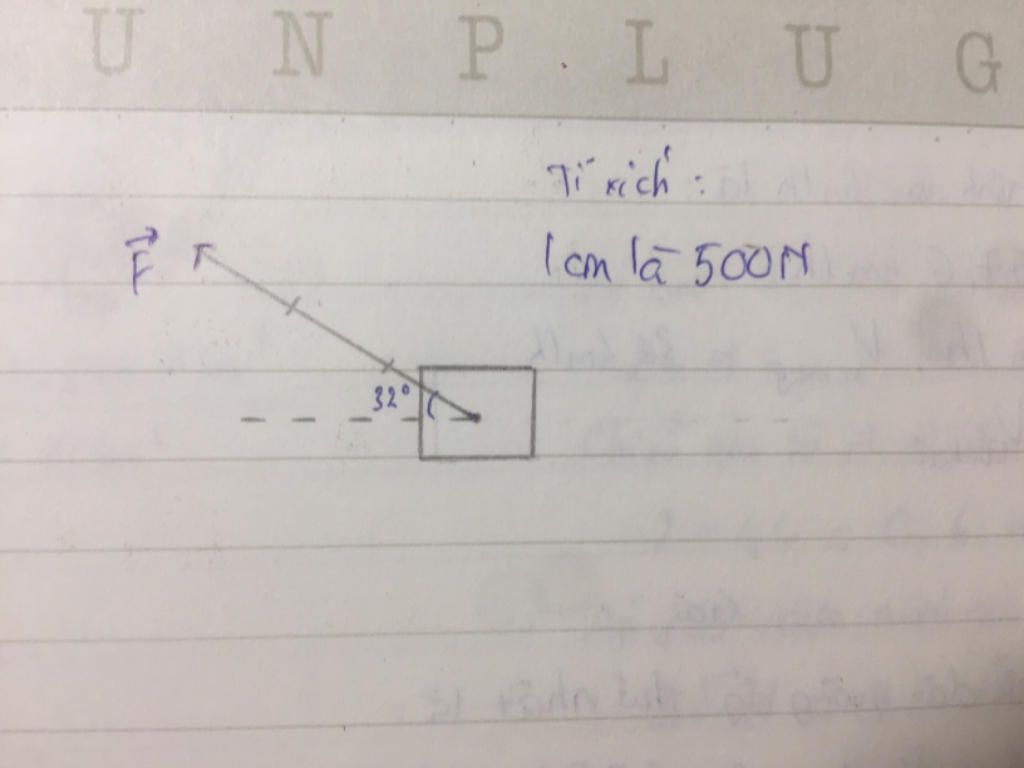 UNPLUG
Tỉ xích :
1cm là 500N
F
32°